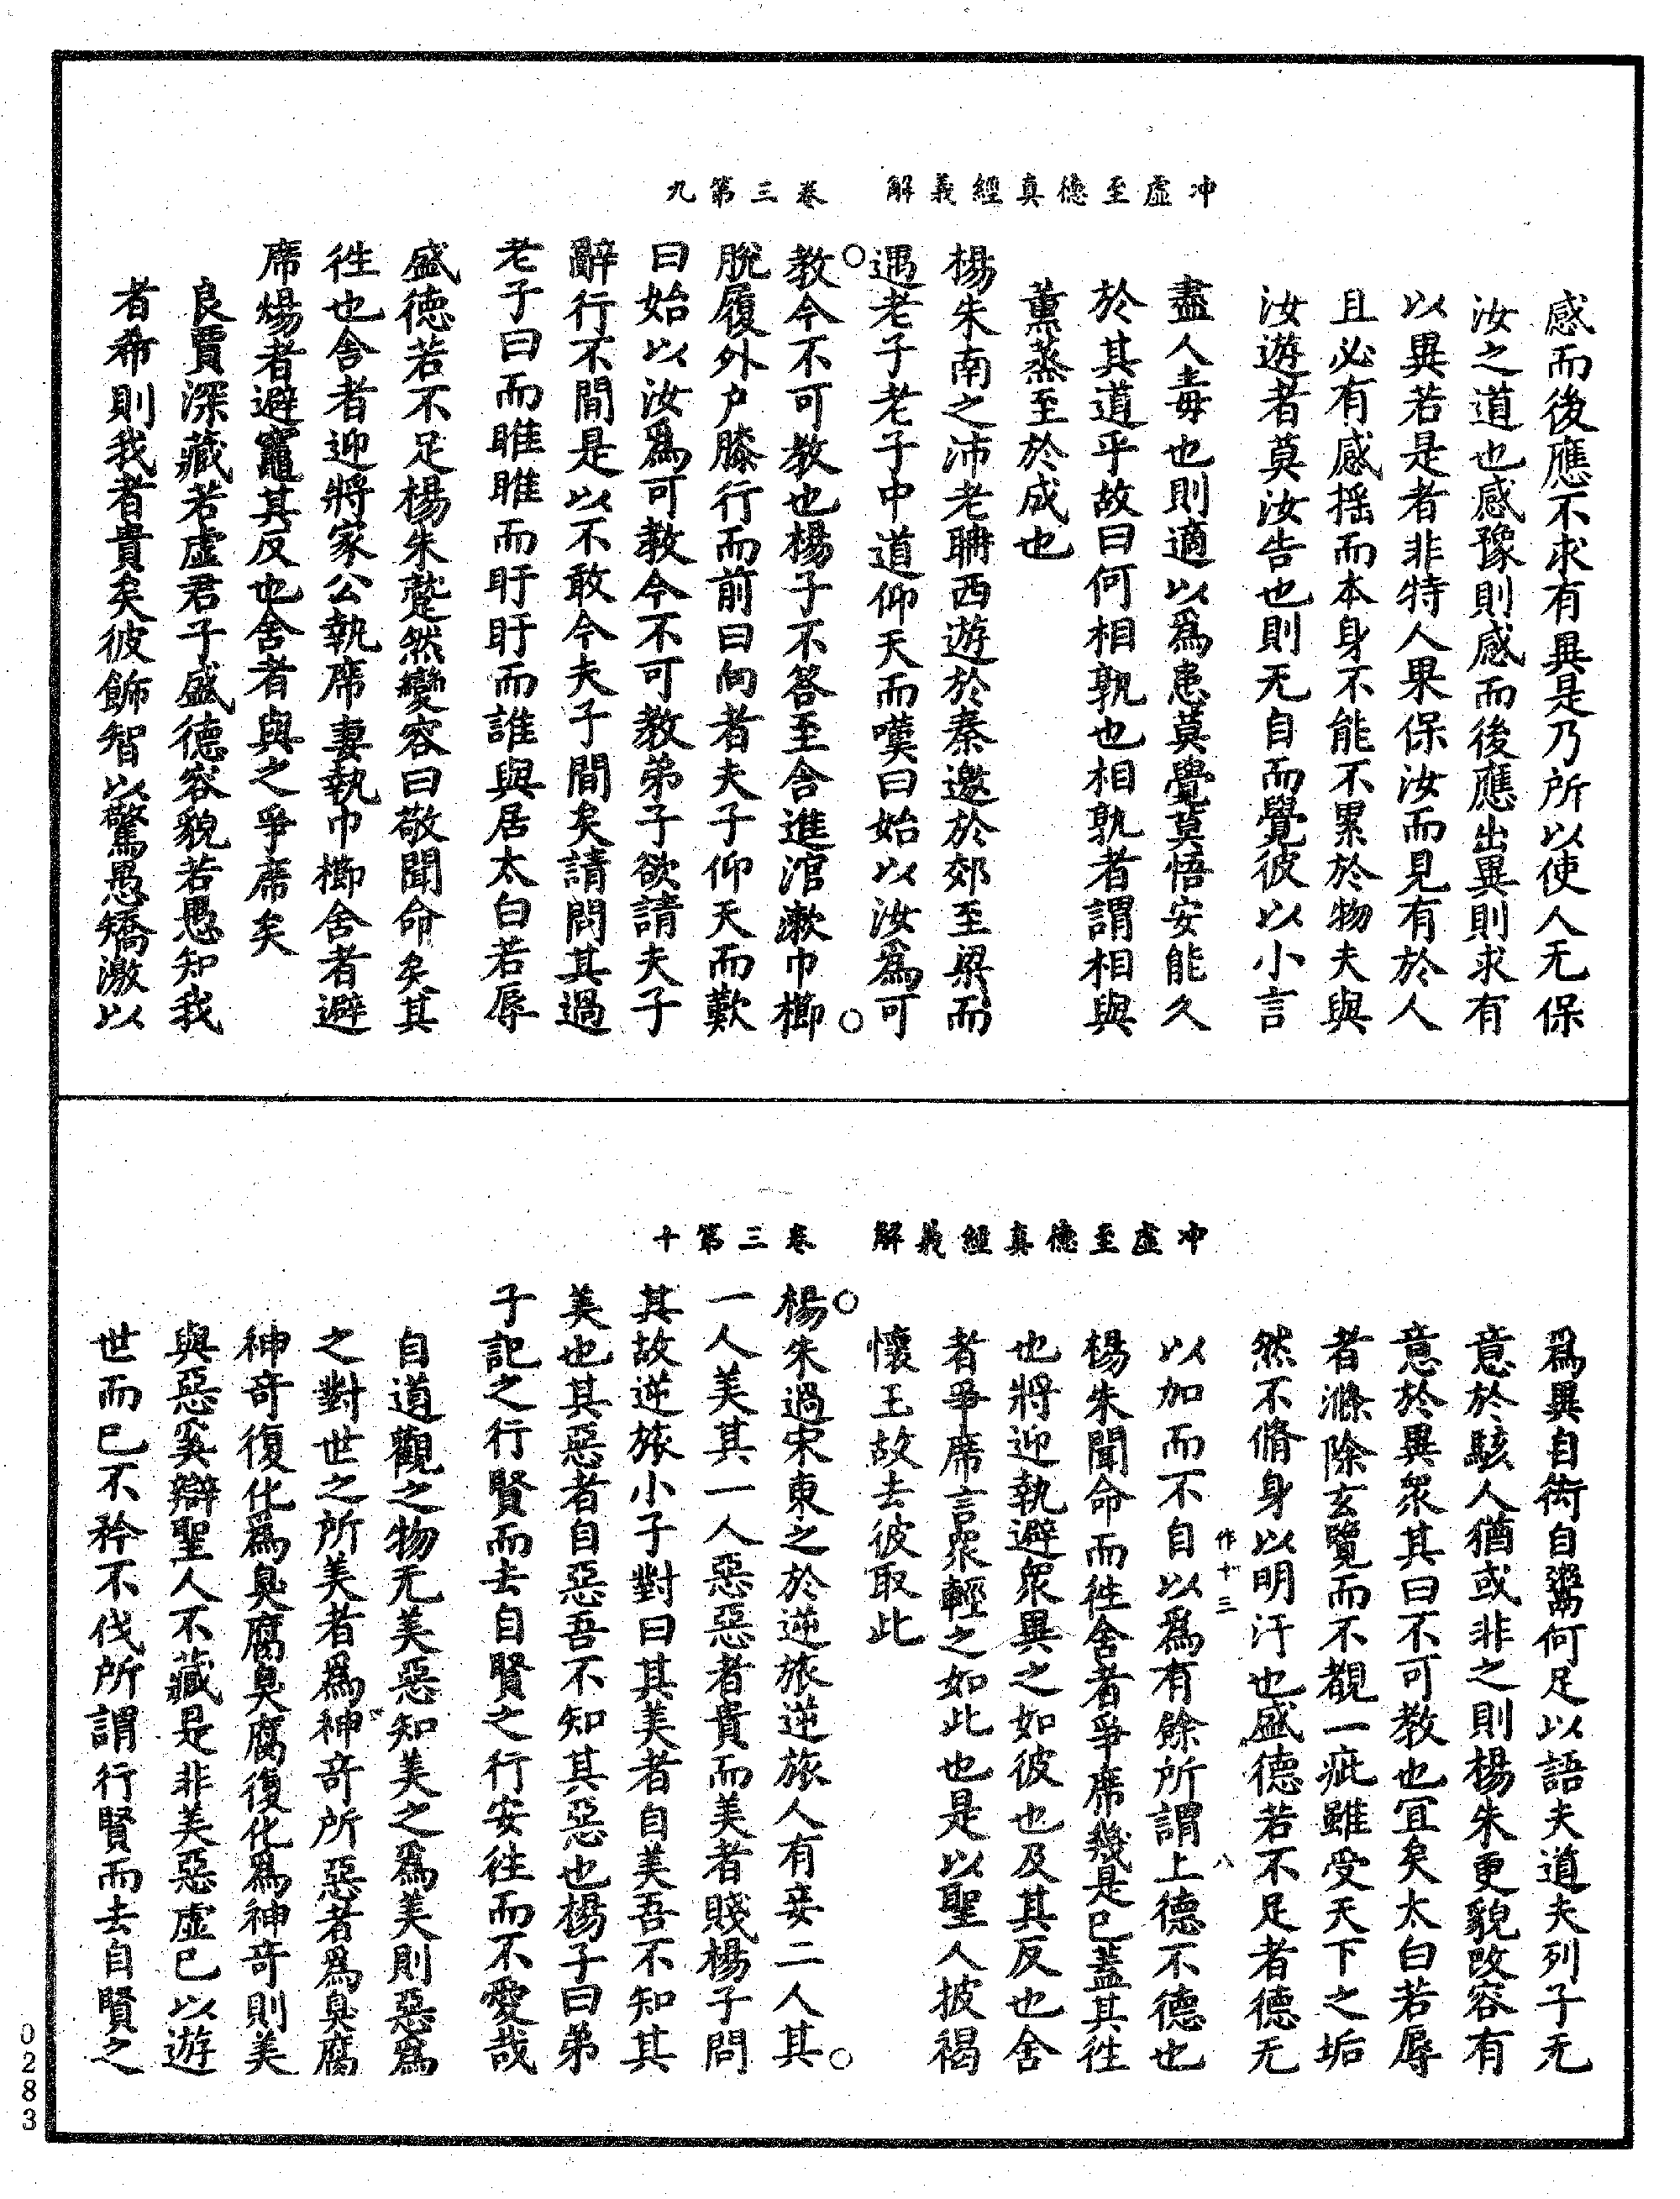 冲虛至德真經義解　卷三第九
感而後應不求有異是乃所以使人无保
汝之道也感豫則感而後應出異則求有
以異若是者非特人果保汝而見有於人
且必有感揺而本身不能不累於物夫與
汝遊者莫汝告也則无自而覺彼以小言
盡人毒也則適以爲患莫覺莫悟安能久
於其道乎故曰何相孰也相孰者謂相與
薰蒸至於成也
楊朱南之沛老聃西遊於秦邀於郊至梁而
遇老子老子中道仰天而嘆曰始以汝爲可
教今不可教也楊子不答至舍進涫漱巾櫛
脫履外户膝行而前曰向者夫子仰天而歎
曰始以汝爲可教今不可教弟子欲請夫子
辭行不間是以不敢今夫子間矣請問其過
老子曰而睢睢而盱盱而誰與居太白若辱
盛德若不足楊朱蹵然變容曰敬聞命矣其
徃也舍者迎將家公執席妻執巾櫛舍者避
席煬者避竈其反也舍者與之爭席矣
良賈深藏若虛君子盛德容貌若愚知我
者希則我者貴矣彼飾智以驚愚矯激以
冲虛至德真經義解　卷三第十
爲異自衒自鬻何足以語夫道夫列子无
意於駭人猶或非之則楊朱更貌改容有
意於異衆其曰不可教也宜矣太白若辱
者滌除玄覽而不覩一疵雖受天下之垢
然不脩身以明汙也盛德若不足者德无
作十三　八
以加而不自以爲有餘所謂上德不德也
楊朱聞命而徃舍者爭席幾是已蓋其徃
也將迎執避衆異之如彼也及其反也舍
者爭席言衆輕之如此也是以聖人披褐
懷玉故去彼取此
楊朱過宋東之於逆旅逆旅人有妾二人其
一人美其一人惡惡者貴而美者賤楊子問
其故逆旅小子對曰其美者自美吾不知其
美也其惡者自惡吾不知其惡也楊子曰弟
子記之行賢而去自賢之行安徃而不愛哉
自道觀之物无美惡知美之爲美則惡爲
之對世之所美者爲神奇所惡者爲臭腐
神奇復化爲臭腐臭腐復化爲神奇則美
與惡奚辯聖人不藏是非美惡虛已以遊
世而已不矜不伐所謂行賢而去自賢之
0283